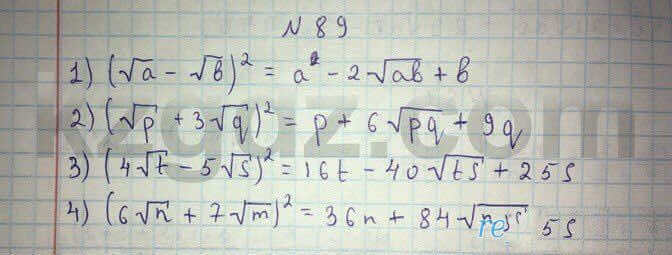 N 89
1) (√a - √b)² = a² - 2√ab + b
2) (√p + 3√q)² = p + 6√pq + 9q
3) (4√t - 5√s)² = 16t - 40√ts + 25s
4) (6√n + 7√m)² = 36n + 84√ 5s